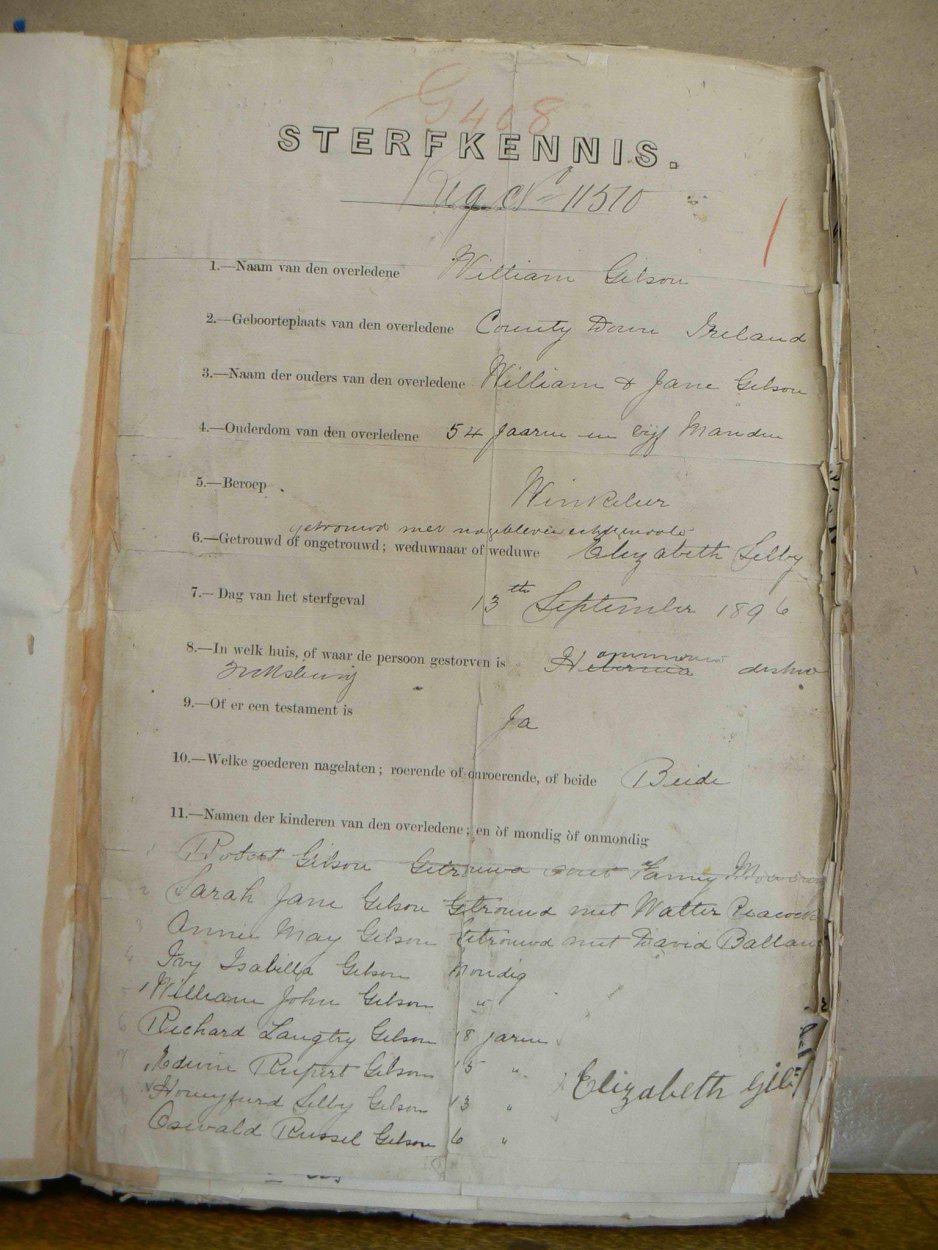 G408
STERFKENNIS.
Reg No 11510
1.—Naam van den overledene William Gibson
2.—Geboorteplaats van den overledene County Down Ireland
3.—Naam der ouders van den overledene William & Jane Gibson
4.—Ouderdom van den overledene 54 Jaaren en vijf Maanden
5.—Beroep Winkelier
getrouwd met nagebleven echtgenoote
6.—Getrouwd of ongetrouwd; weduwnaar of weduwe Elizabeth Selby
7.—Dag van het sterfgeval 13th September 1896
8.—In welk huis, of waar de persoon gestorven is
Ficksburg
9.—Of er een testament is Ja
10.—Welke goederen nagelaten; roerende of onroerende, of beide Beide
11.—Namen der kinderen van den overledene; en òf mondig òf onmondig
1 Robert Gibson Getrouwd met Fanny
2 Sarah Jane Gibson Getrouwd met Walter Peacock
3 Annie May Gibson Getrouwd met David
4 Ivy Isabella Gibson Mondig
5 William John Gibson "
6 Richard Langtry Gibson 18 jaren
7 Edwin Rupert Gibson 15 "
Elizabeth
8 Honeyfurd Selby Gibson 13 "
9 Oswald Russel Gibson 6 "